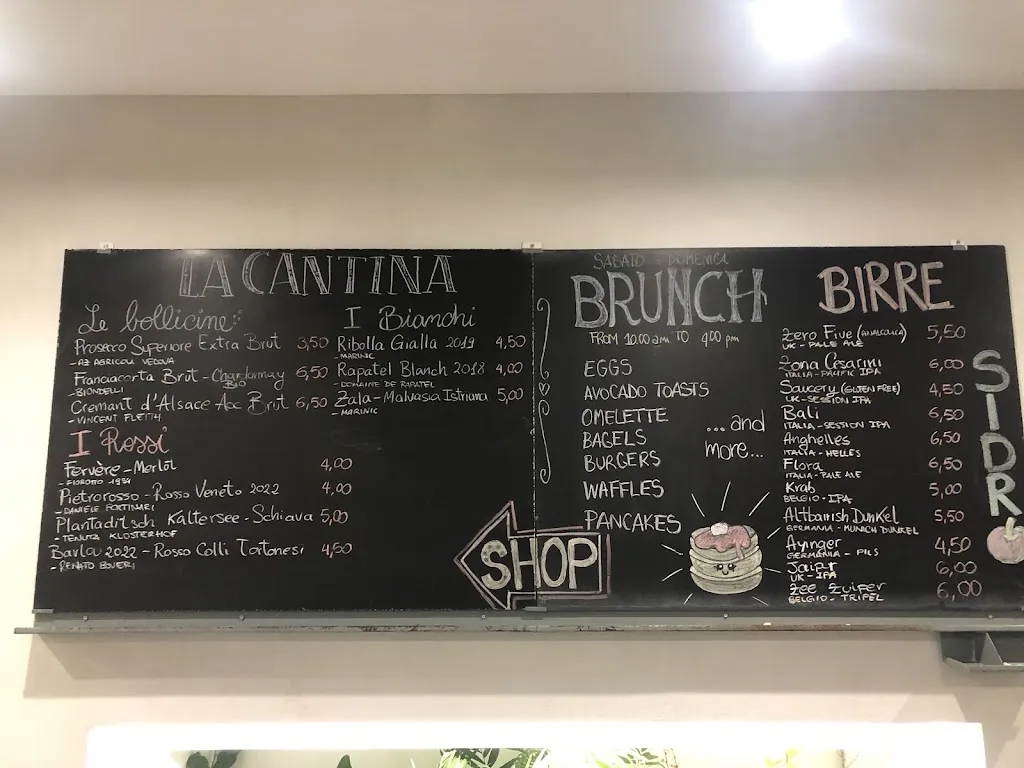 LA CANTINA
Le bollicine
Prosecco Superiore Extra Brut 3,50
- AZ AGRICOLA VEDOVA
Franciacorta Brut - Chardonnay 6,50
BIO
- BIONDELLI
Cremant d'Alsace Aoc Brut 6,50
- VINCENT FLEITH
I Rossi
Fervère - Merlot 4,00
- FIOROTO 1934
Pietrorosso - Rosso Veneto 2022 4,00
- DANIELE PORTINARI
Plantaditsch Kaltersee - Schiava 5,00
- TENUTA KLOSTERHOF
Barla 2022 - Rosso Colli Tortonesi 4,50
- RENATO BOVERI
I Bianchi
Ribolla Gialla 2019 4,50
- MARINIC
Rapatel Blanch 2018 4,00
- DOMAINE DE RAPATEL
Zala - Malvasia Istriana 5,00
- MARINIC
SHOP
SABATO - DOMENICA
BRUNCH
FROM 10.00 am TO 4.00 pm
EGGS
AVOCADO TOASTS
OMELETTE
BAGELS
BURGERS
WAFFLES
PANCAKES
...and
more...
BIRRE
Zero Five (ANALCOLICA) 5,50
UK - PALE ALE
Zona Cesarini 6,00
ITALIA - PACIFIC IPA
Saucery (GLUTEN FREE) 4,50
UK - SESSION IPA
Bali 6,50
ITALIA - SESSION IPA
Anghelles 6,50
ITALIA - HELLES
Flora 6,50
ITALIA - PALE ALE
Krab 5,00
BELGIO - IPA
Altbairish Dunkel 5,50
GERMANIA - MUNICH DUNKEL
Ayinger 4,50
GERMANIA - PILS
Jaipr 6,00
UK - IPA
Zee Zuiper 6,00
BELGIO - TRIPEL
SIDR